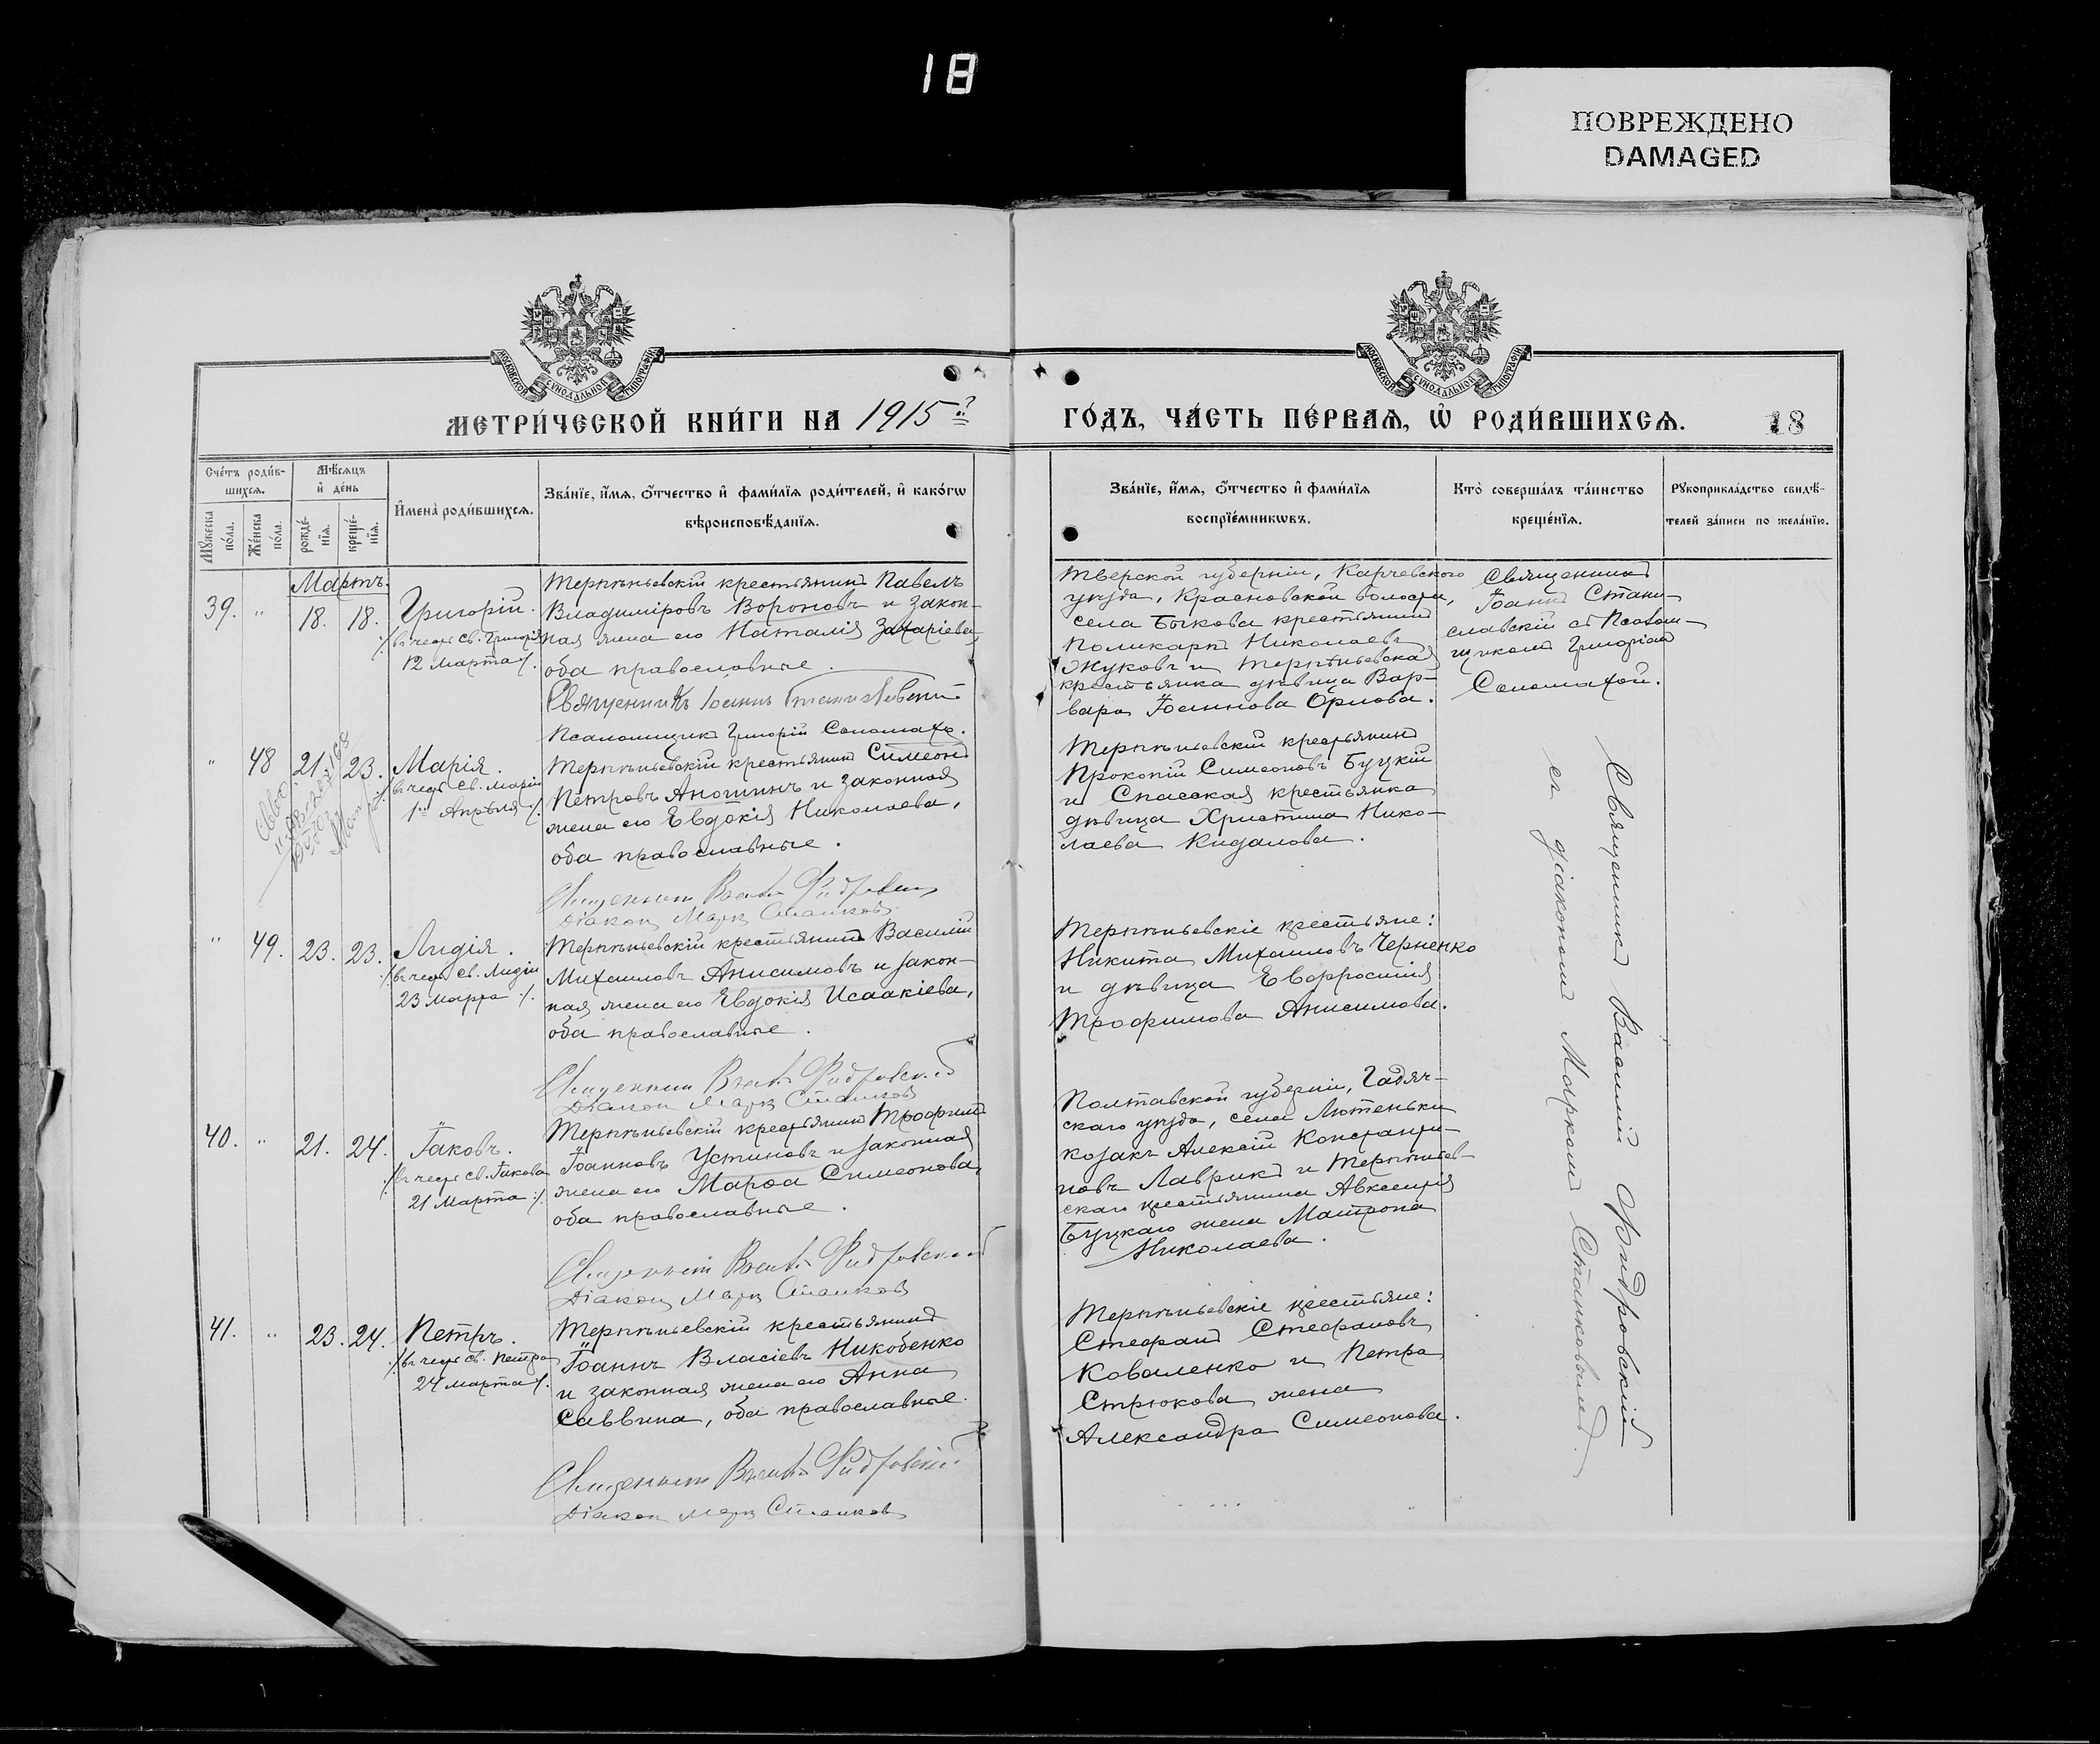 18
ПОВРЕЖДЕНО
DAMAGED
МОСКОВСКОЙ СУНОДАЛЬНОЙ ТИПОГРАФІИ
МОСКОВСКОЙ СУНОДАЛЬНОЙ ТИПОГРАФІИ
МЕТРИ́ЧЕСКОЙ КНИ́ГИ НА 1915
ГО́ДЪ, ЧА́СТЬ ПЕ́РВАѦ, Ѡ҆ РОДИ́ВШИХСѦ.
18
Сче́тъ роди́в-
шихсѧ.
Мꙋ́жеска по́ла.
Же́нска по́ла.
Мѣ́сѧцъ
и҆ де́нь
рожде́-
нїѧ.
креще́-
нїѧ.
И҆мена̀ роди́вшихсѧ.
Зва́нїе, и҆́мѧ, ѻ҆́тчество и҆ фами́лїѧ роди́телей, и҆ како́гѡ
вѣроисповѣ́данїѧ.
Зва́нїе, и҆́мѧ, ѻ҆́тчество и҆ фами́лїѧ
воспрїе́мникѡвъ.
Кто̀ соверша́лъ та́инство
креще́нїѧ.
Рꙋкоприкла́дство свидѣ́-
телей за́писи по жела́нїю.
Мартъ.
39. " 18. 18.
Григорій.
/: въ честь Св. Григорія
12 Марта :/.
Терпѣньевскій крестьянинъ Павелъ
Владиміровъ Вороновъ и закон-
ная жена его Наталія Захаріева,
оба православные.
Священникъ Іоаннъ Станиславскій
Псаломщикъ Григорій Соломаха.
Тверской губерніи, Карчевского
уѣзда, Красновской волости,
села Быкова крестьянинъ
Поликарпъ Николаевъ
Жуковъ и Терпѣньевская
крестьянка дѣвица Вар-
вара Іоаннова Орлова.
Священникъ
Іоаннъ Стани-
славскій съ Псалом-
щикомъ Григоріемъ
Соломахой.
" 48 21. 23.
Марія.
/: въ честь Св. Маріи
1го Апрѣля :/.
Терпѣньевскій крестьянинъ Симеонъ
Петровъ Аношинъ и законная
жена его Евдокія Николаева,
оба православные.
Священникъ
Діаконъ Маркъ Станковъ
Терпѣньевскій крестьянинъ
Прокопій Симеоновъ Буцкій
и Спасская крестьянка
дѣвица Христина Нико-
лаева Кидалова.
Священникъ Василій
съ діакономъ Маркомъ Станковымъ.
" 49. 23. 23.
Лидія.
/: въ честь Св. Лидіи
23 Марта :/.
Терпѣньевскій крестьянинъ Василій
Михаиловъ Анисимовъ и закон-
ная жена его Евдокія Исаакіева,
оба православные.
Священникъ
Діаконъ Маркъ Станковъ
Терпѣньевскіе крестьяне:
Никита Михаиловъ Черненко
и дѣвица Евфросинія
Трофимова Анисимова.
40. " 21. 24.
Іаковъ.
/: въ честь Св. Іакова
21 Марта :/.
Терпѣньевскій крестьянинъ Трофимъ
Іоанновъ Устиновъ и законная
жена его Марфа Симеонова,
оба православные.
Священникъ
Діаконъ Маркъ Станковъ
Полтавской губерніи, Гадяч-
скаго уѣзда, села Лютеньки
козакъ Алексій Константи-
новъ Лаврикъ и Терпѣньев-
скаго крестьянина Авксентія
Буцкаго жена Матрона
Николаева.
41. " 23. 24.
Петръ.
/: въ честь Св. Петра
24 Марта :/.
Терпѣньевскій крестьянинъ
Іоаннъ Власіевъ Никобенко
и законная жена его Анна
Саввина, оба православные.
Священникъ
Діаконъ Маркъ Станковъ
Терпѣньевскіе крестьяне:
Стефанъ Стефановъ
Коваленко и Петра
Стрюкова жена
Александра Симеонова.